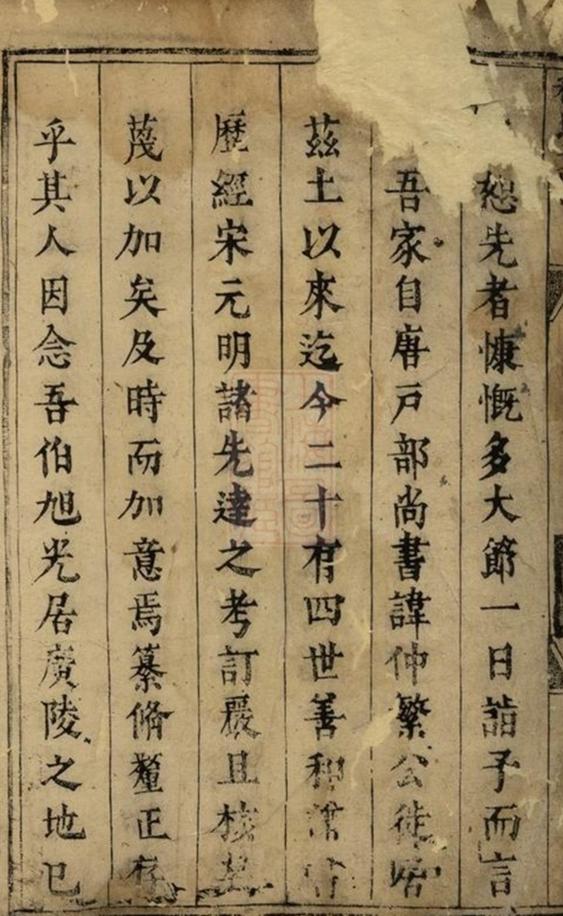 恕先者慷慨多大節一日詣予而言
吾家自唐戸部尚書諱仲繁公徙居
茲土以來迄今二十有四世善和譜
歷經宋元明諸先達之考訂嚴且核
蔑以加矣及時而加意焉纂脩釐正存
乎其人因念吾伯旭光居廣陵之地已